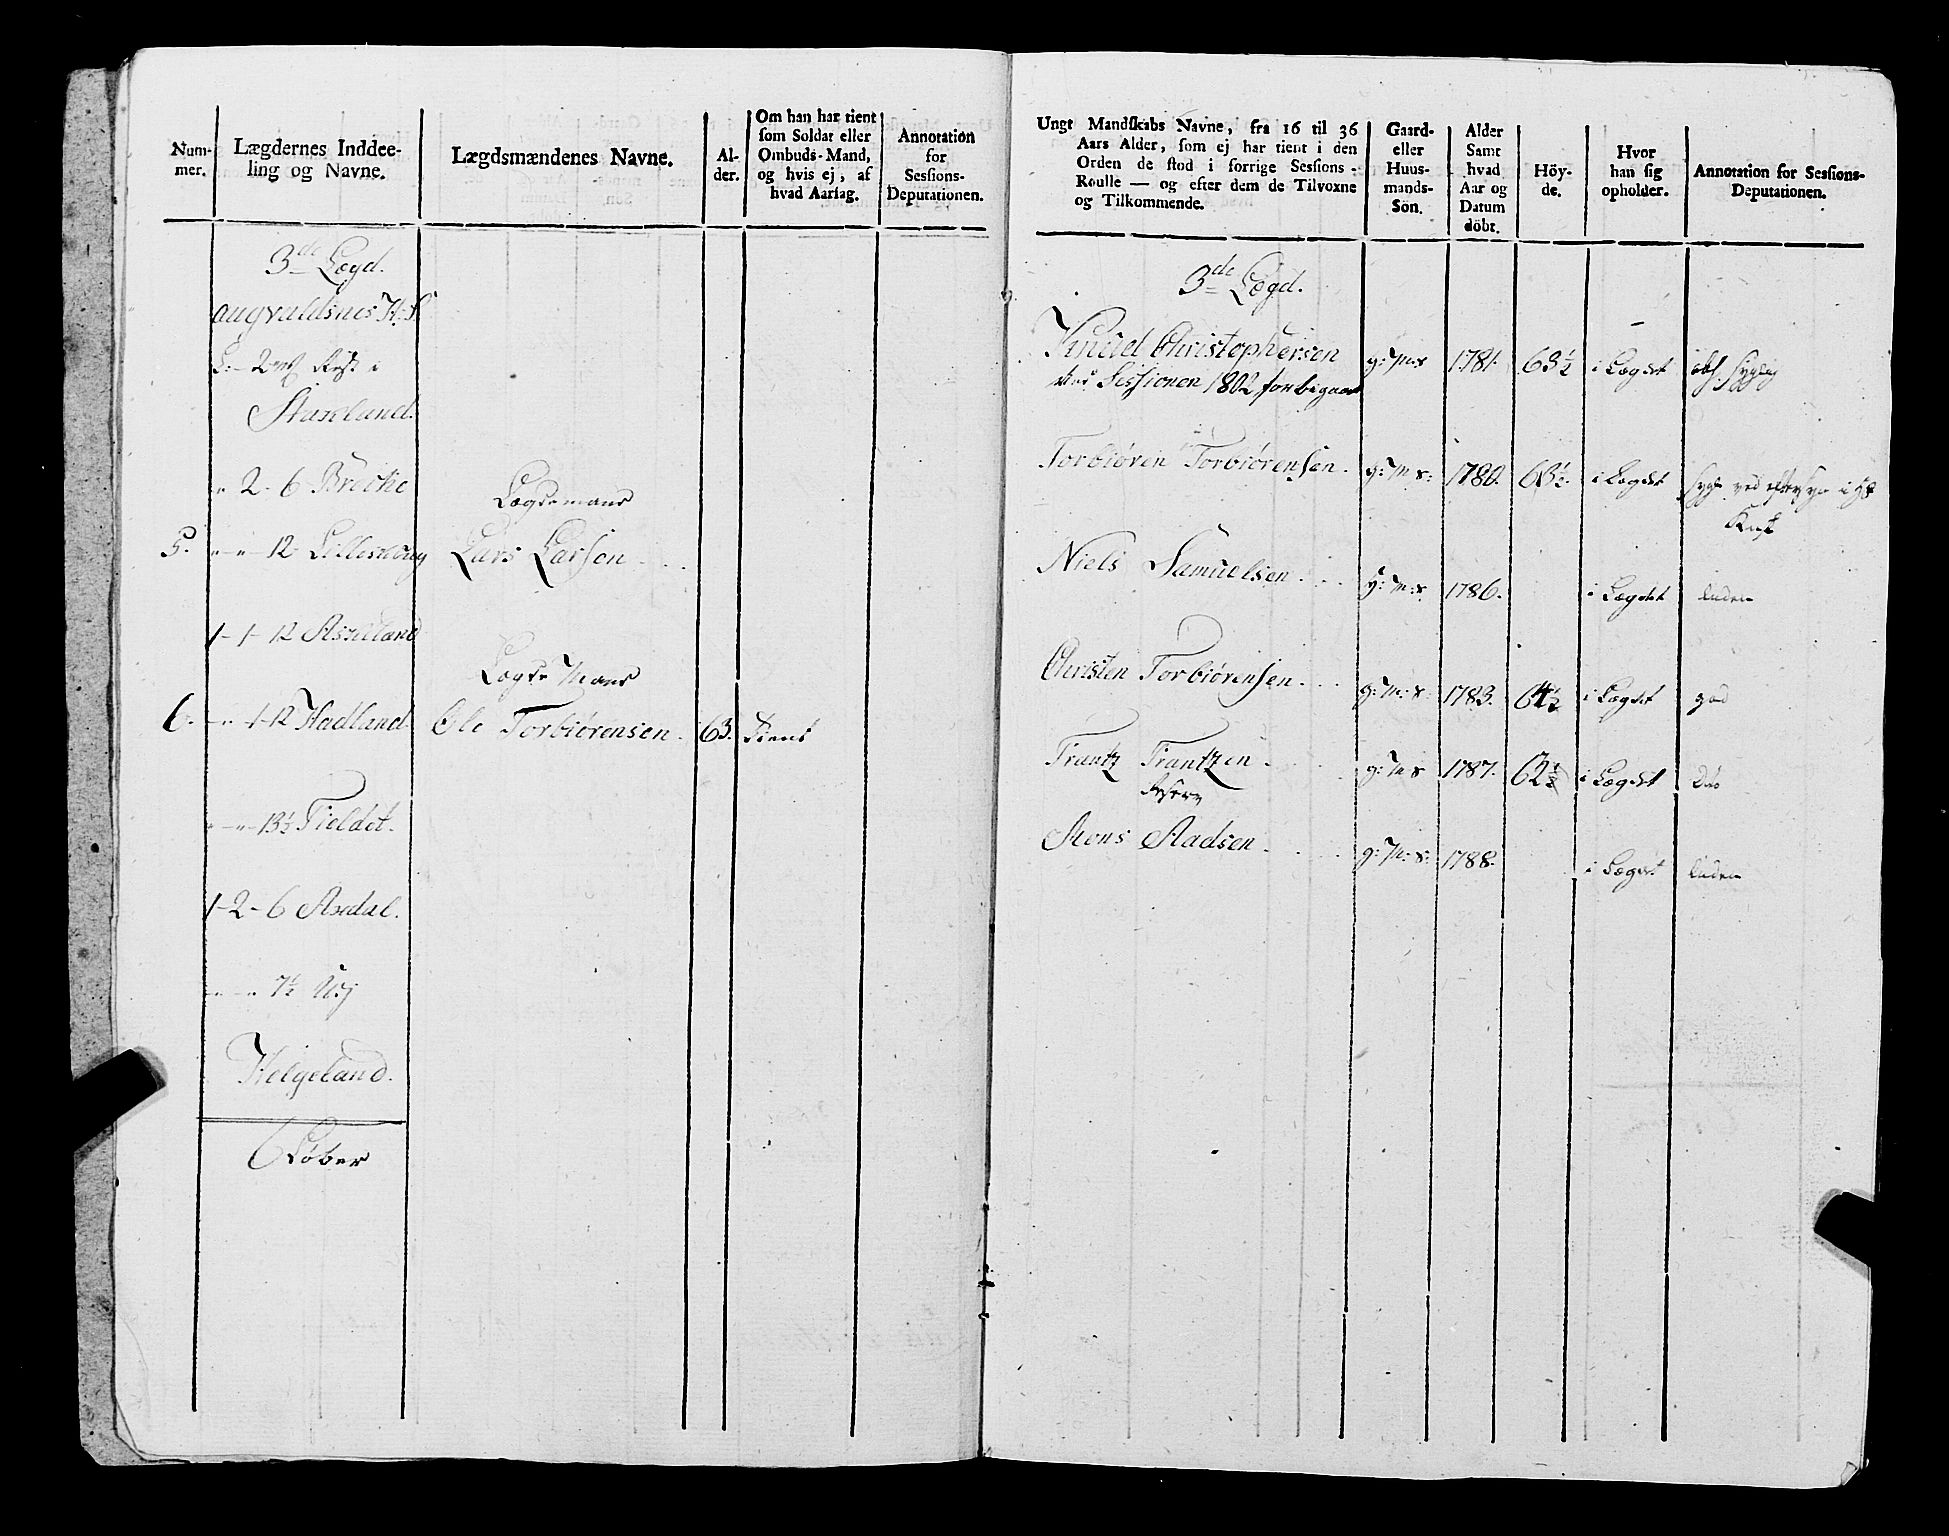 Num-
mer.
Lægdernes Inddee-
ling og Navne.
Lægdsmændenes Navne.
Al-
der.
Om han har tient
som Soldat eller
Ombuds-Mand,
og hvis ej, af
hvad Aarsag.
Annotation
for
Sessions-
Deputationen.
3de Lægd.
augvaldsnes
Rest i
2 - 6 Brecke
Lægdsmand
5. " - " - 12
Lars Larsen
1 - 1 - 12
Lægds Mand
6. - " 1 - 12 Hadland. Ole Torbiørensen. 63. Tient
" - " - 13½ Fieldet.
1 - 2 - 6
" - " 7½
Helgeland.
6 Løber
Ungt Mandskabs Navne, fra 16 til 36
Aars Alder, som ej har tient i den
Orden de stod i forrige Sessions-
Roulle — og efter dem de Tilvoxne
og Tilkommende.
Gaard-
eller
Huus-
mands-
Sön.
Alder
Samt
hvad
Aar og
Datum
döbt.
Höy-
de.
Hvor
han sig
opholder.
Annotation for Sessions-
Deputationen.
3de Lægd.
Knud Christophersen g: M: s 1781. 63½ i Lægdet
ved Sessionen 1802 forbigaaet
Torbiören Torbiörensen. g: M: s: 1780. 63½. i Lægdet
Niels Samuelsen. g: M: s 1786. i Lægdet liden
Christen Torbiörensen. g: M: s. 1783. 64½ i Lægdet god
Frantz Frantzen. g: M s 1787. 62½ i Lægdet
Mons Aadsen. g: M: s: 1788. i Lægdet liden